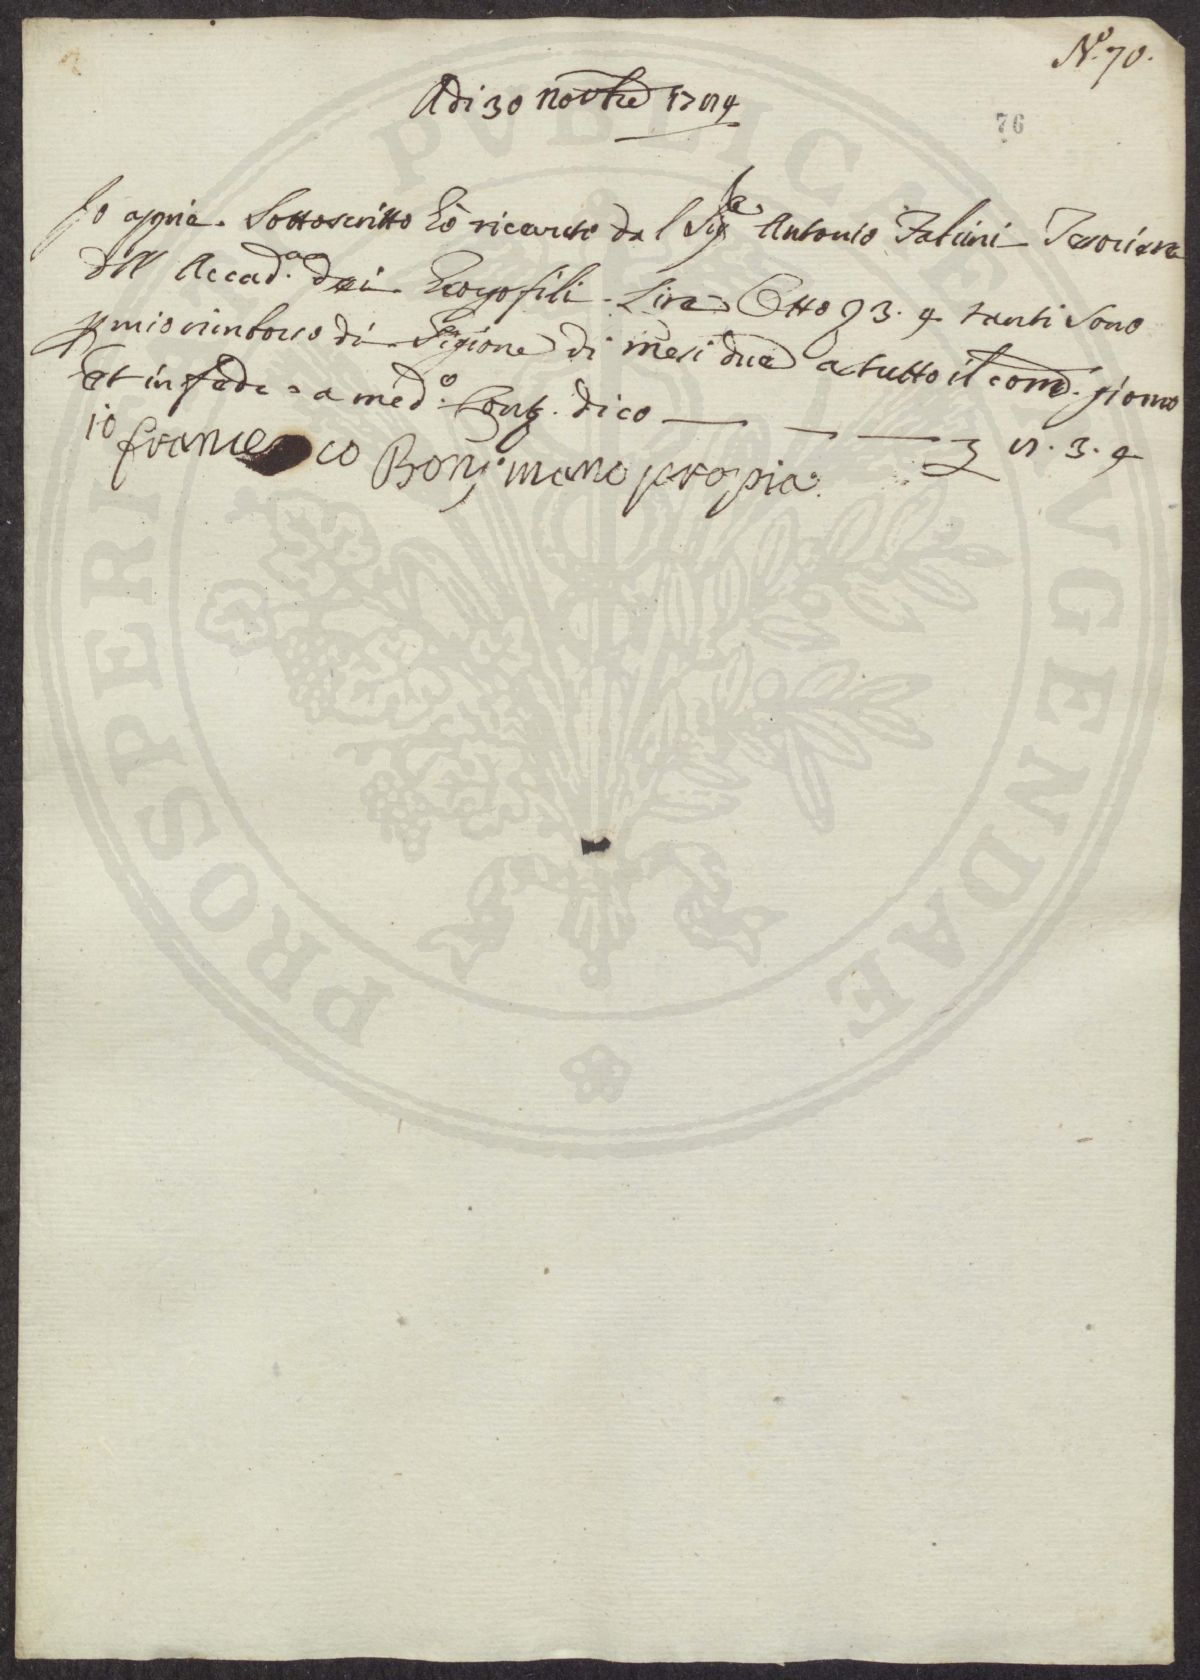 N.º 70.
Adi 30 Novbre 1784
76
Io appiè Sottoscritto hò ricevuto dal Sigre Antonio Fabrini Tesoriere
dell Accad.a dei Georgofili Lire Otto 3. 4 tanti Sono
p mio rimborso di Pigione di mesi due a tutto il corre. giorno
Et in fede a med.o Cont. dico — — — £ 8. 3. 4
io francesco Bonj mano propia.
PROSPERITATI PVBLICAE AVGENDAE